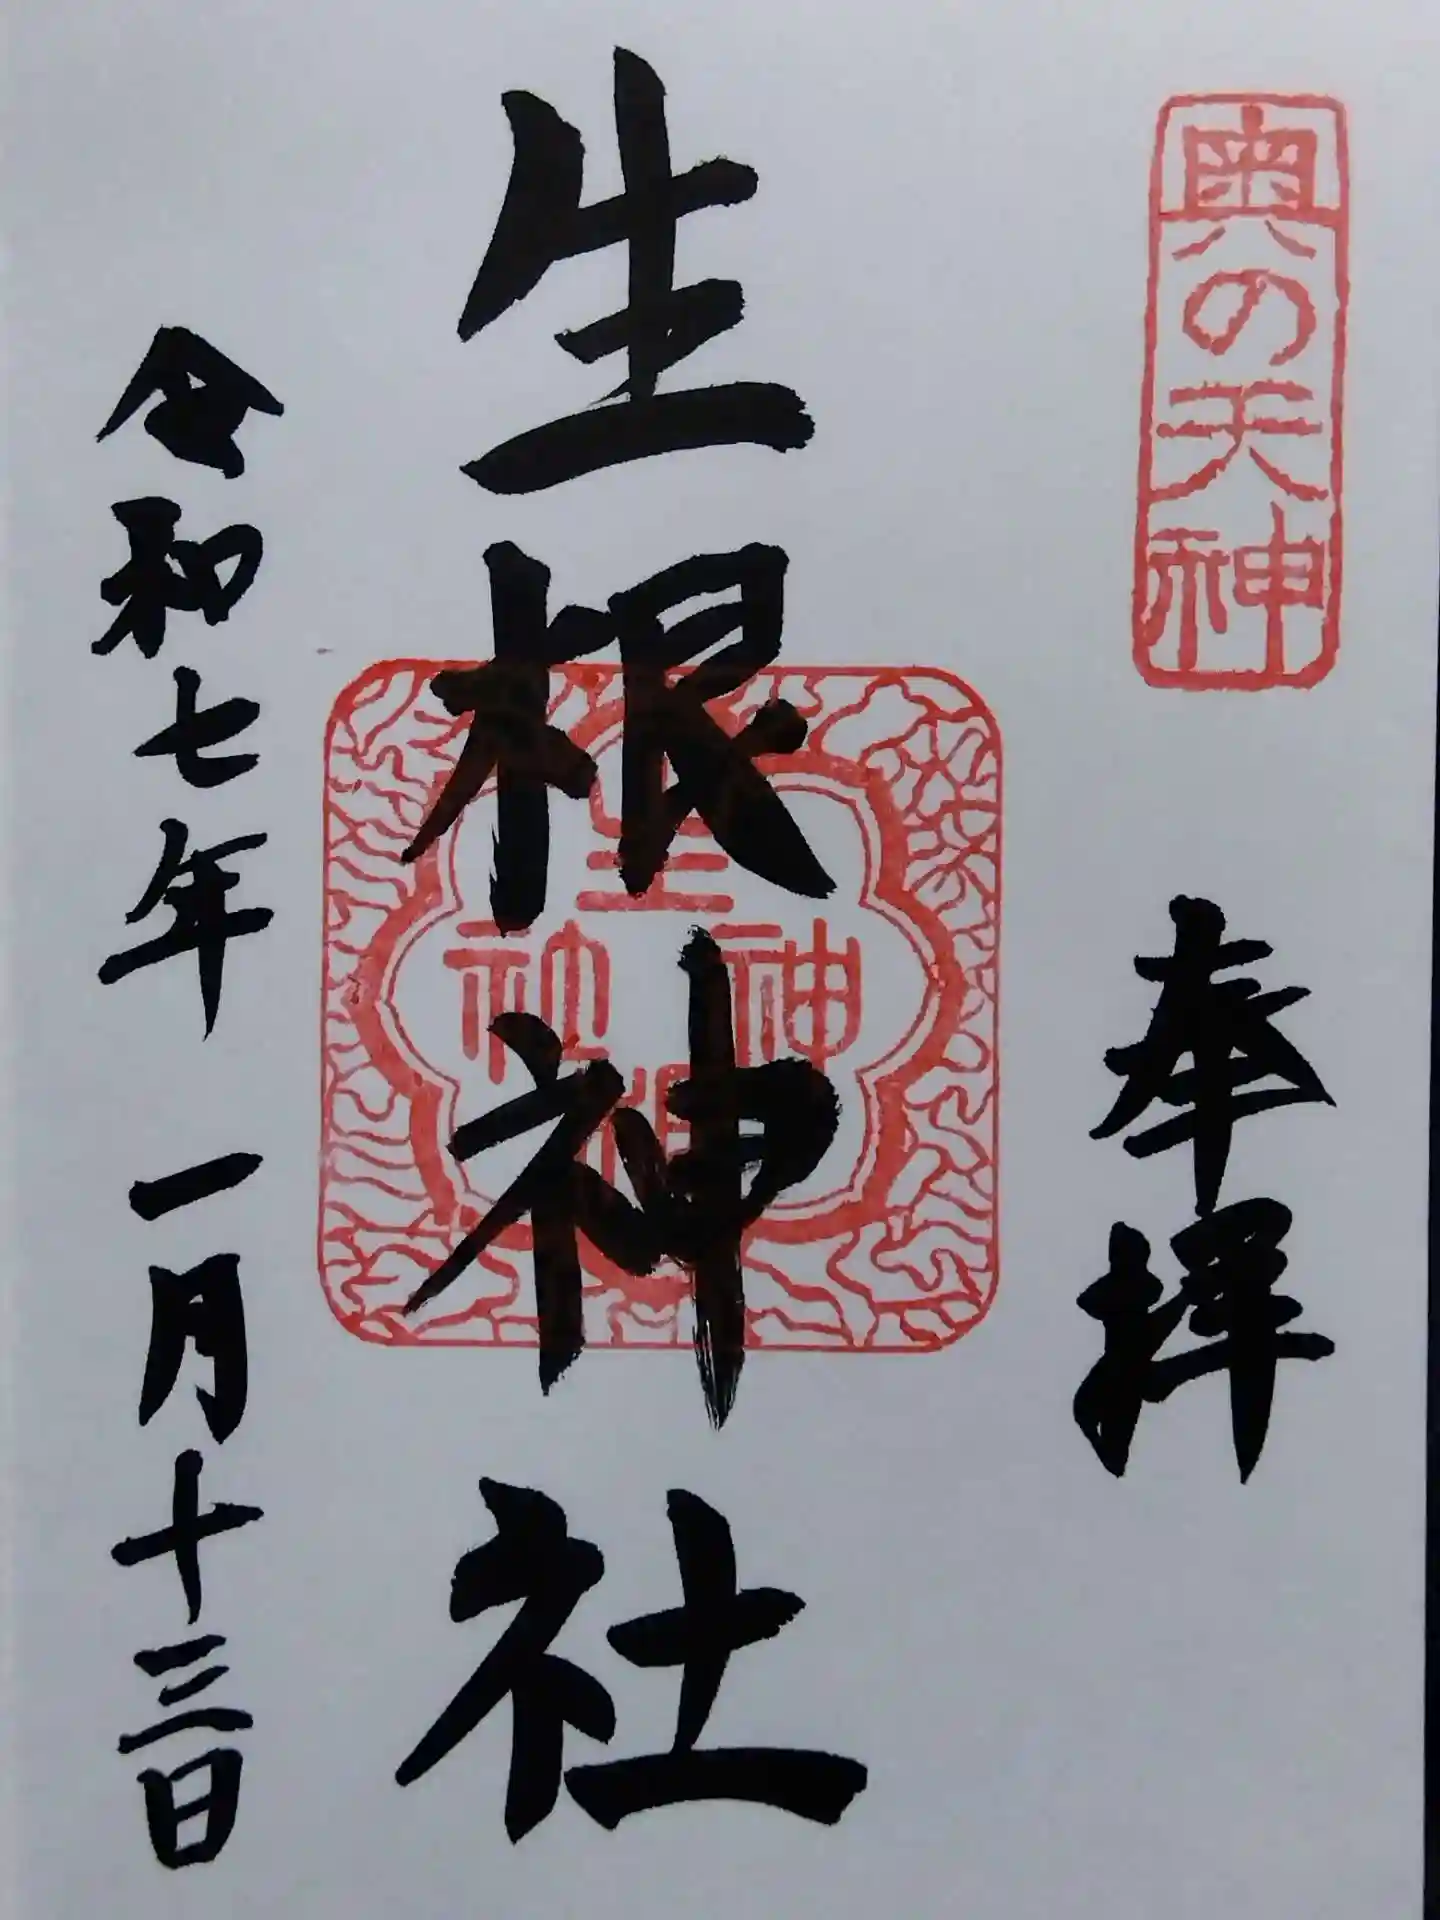 奥の天神
奉拝
生根神社
生根神社
令和七年一月十三日